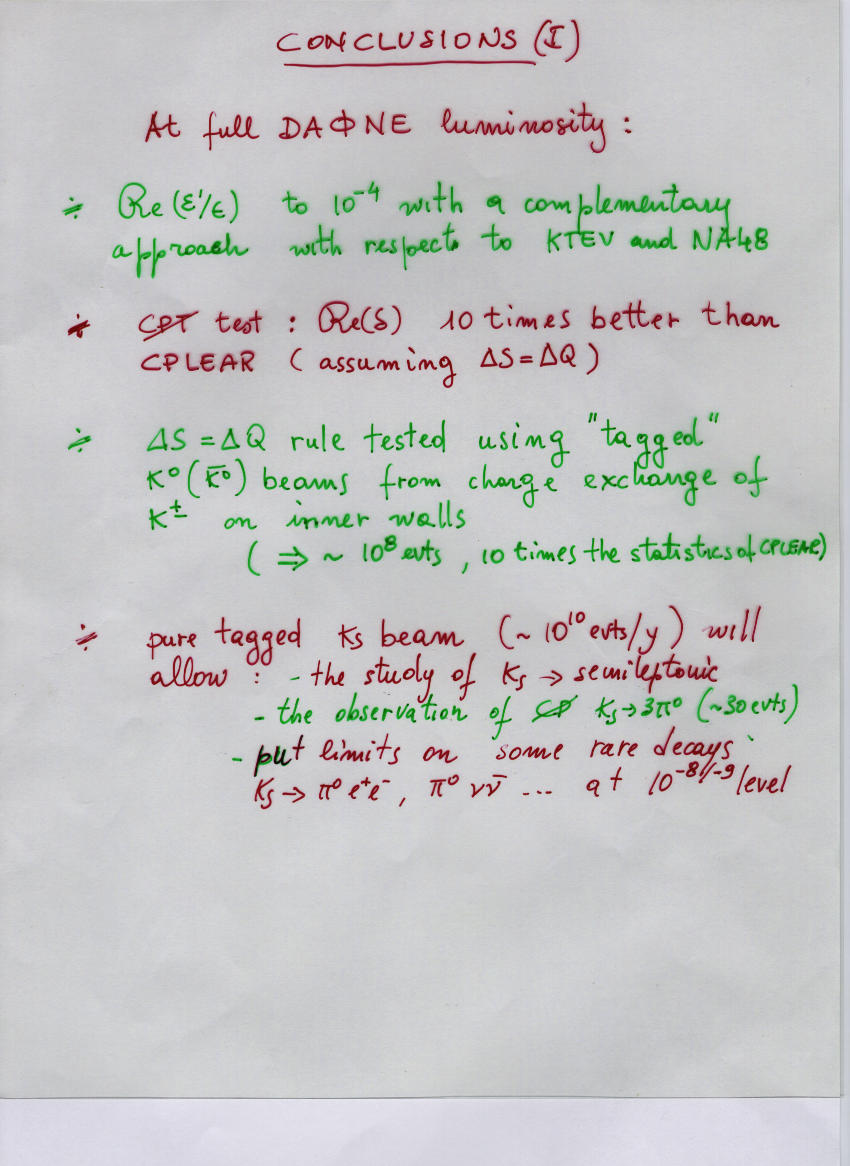 CONCLUSIONS (I)
At full DAΦNE luminosity :
÷ Re (ε'/ε) to 10⁻⁴ with a complementary
approach with respect to KTEV and NA48
÷ C̶P̶T̶ test : Re(δ) 10 times better than
CPLEAR ( assuming ΔS = ΔQ )
÷ ΔS = ΔQ rule tested using "tagged"
K⁰ (K̄⁰) beams from charge exchange of
K± on inner walls
( ⇒ ~ 10⁸ evts , 10 times the statistics of CPLEAR)
÷ pure tagged Ks beam (~ 10¹⁰ evts/y ) will
allow : - the study of Ks → semileptonic
- the observation of C̶P̶ Ks → 3π⁰ (~30 evts)
- put limits on some rare decays
Ks → π⁰ e⁺e⁻, π⁰ νν̄ ... at 10⁻⁸/⁻⁹ level